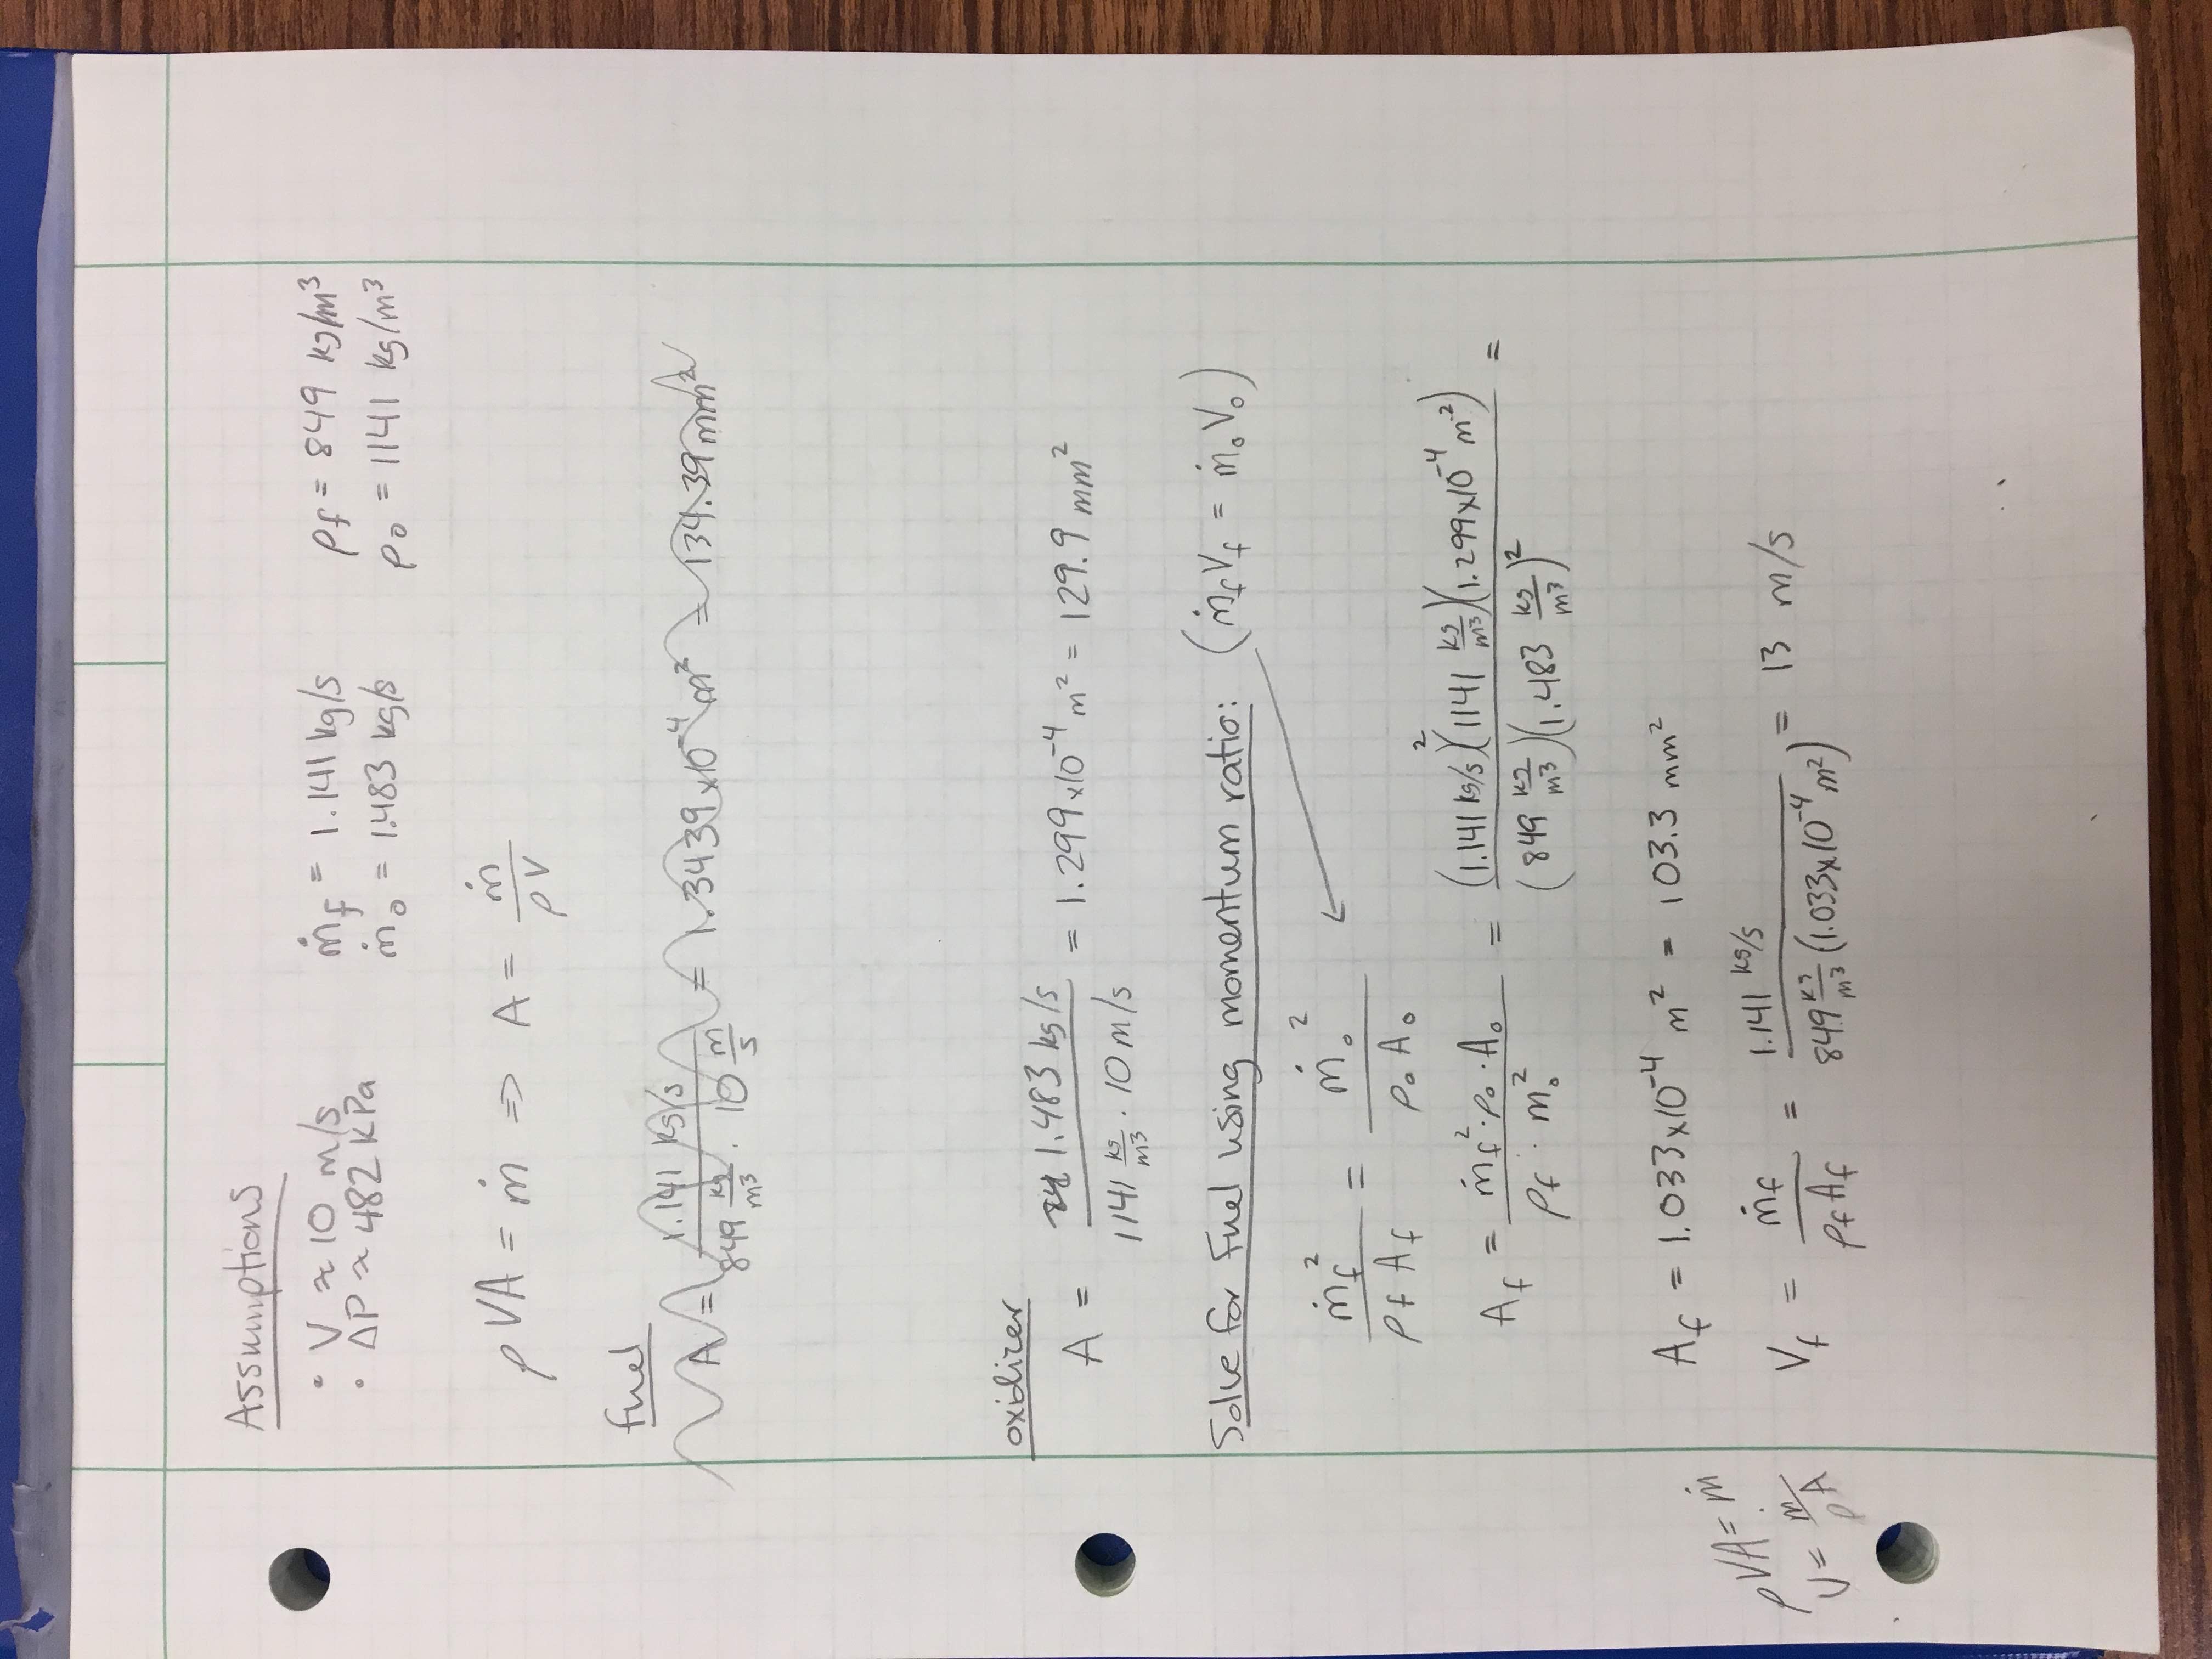 Assumptions
• V ≈ 10 m/s    ṁf = 1.141 kg/s    ρf = 849 kg/m³
• ΔP ≈ 482 kPa    ṁo = 1.483 kg/s    ρo = 1141 kg/m³
ρVA = ṁ ⇒ A = ṁ / ρV
fuel
A = 1.141 kg/s / (849 kg/m³ · 10 m/s) = 1.3439x10⁻⁴ m² = 134.39 mm²
oxidizer
A = 1.483 kg/s / (1141 kg/m³ · 10 m/s) = 1.299x10⁻⁴ m² = 129.9 mm²
Solve for Fuel using momentum ratio: (ṁfVf = ṁoVo)
ṁf² / ρfAf = ṁo² / ρoAo
Af = ṁf²·ρo·Ao / ρf·mo² = (1.141 kg/s)²(1141 kg/m³)(1.299x10⁻⁴ m²) / (849 kg/m³)(1.483 kg/m³)² =
Af = 1.033x10⁻⁴ m² = 103.3 mm²
ρVA = ṁ
V = ṁ / ρA
Vf = ṁf / ρfAf = 1.141 kg/s / 849 kg/m³ (1.033x10⁻⁴ m²) = 13 m/s